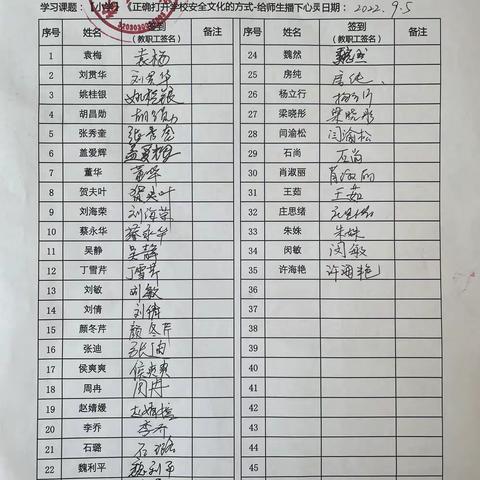 学习课题：【小学】《正确打开学校安全文化的方式-给师生播下心灵 日期：2022.9.5
序号 姓名 签到（教职工签名） 备注 序号 姓名 签到（教职工签名） 备注
1 袁梅 袁梅 24 魏然 魏然
2 刘贯华 刘贯华 25 房纯 房纯
3 姚桂银 姚桂银 26 杨立行 杨立行
4 胡昌勋 胡昌勋 27 梁晓彤 梁晓彤
5 张秀奎 张秀奎 28 闫渝松 闫渝松
6 盖爱辉 盖爱辉 29 石尚 石尚
7 董华 董华 30 肖淑丽 肖淑丽
8 贺夫叶 贺夫叶 31 王茹 王茹
9 刘海荣 刘海荣 32 庄思绪
10 蔡永华 蔡永华 33 朱姝 朱姝
11 吴静 吴静 34 闵敏 闵敏
12 丁雪芹 丁雪芹 35 许海艳 许海艳
13 刘敏 刘敏 36
14 刘倩 刘倩 37
15 颜冬芹 颜冬芹 38
16 张迪 张迪 39
17 侯爽爽 侯爽爽 40
18 周冉 周冉 41
19 赵婧媛 42
20 李乔 李乔 43
21 石璐 石璐 44
22 魏利平 魏利平 45